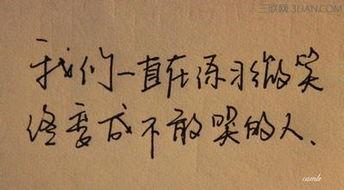 三联网 3LIAN.COM
我们一直在练习微笑
终变成不敢哭的人、
camle